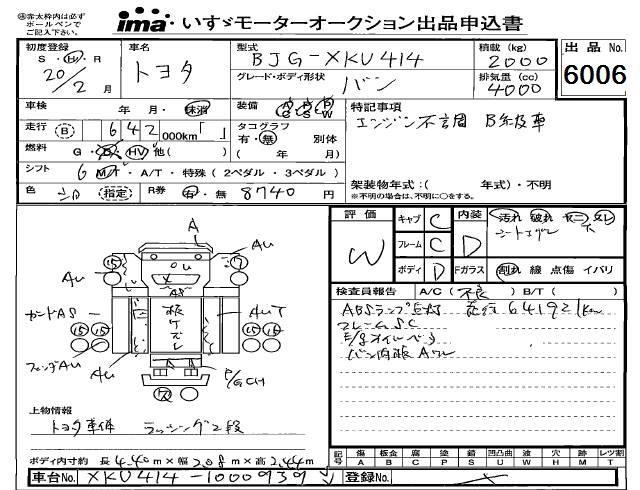 ㊟赤太枠内は必ず
ボールペンで
ご記入下さい。
ima いすゞモーターオークション出品申込書
初度登録 S・H・R 20年 2月
車名 トヨタ
型式 BJG-XKU414
グレード・ボディ形状 バン
積載(kg) 2000
排気量(cc) 4000
出品No. 6006
車検 年・月・抹消
装備 A/C P/S P/W
走行 B 642 000km「 」
タコグラフ 有・無 別体 ( 年 月)
燃料 G・D・HV・他( )
シフト 6 MT・A/T・特殊(2ペダル・3ペダル)
色 シロ 指定 R券 有・無 8740円
特記事項
エンジン不調 B級車
架装物年式:( 年式)・不明
※不明の場合は、不明に○をする。
評価 W
キャブ C
フレーム C
ボディ D
内装 D
汚れ 破れ ヤニ スレ
Fガラス 割れ 線 点傷 イバリ
検査員報告 A/C(不良) B/T( )
ABSランプ点灯 走行 641921km
フレームSC
E/gオイルベト
バン内張Aワレ
A
AU
AU
AU T
カントAS
AS
フェンダAU
AU
P/G CH
上物情報
トヨタ車体 ラッシング2段
ボディ内寸約 長4.40m×幅2.08m×高2.44m
記号 傷A 板金B 腐C 塗P 錆S 凹凸曲U 波W 穴H 跡M レツ割T
車台No. XKU414-1000939
登録No.